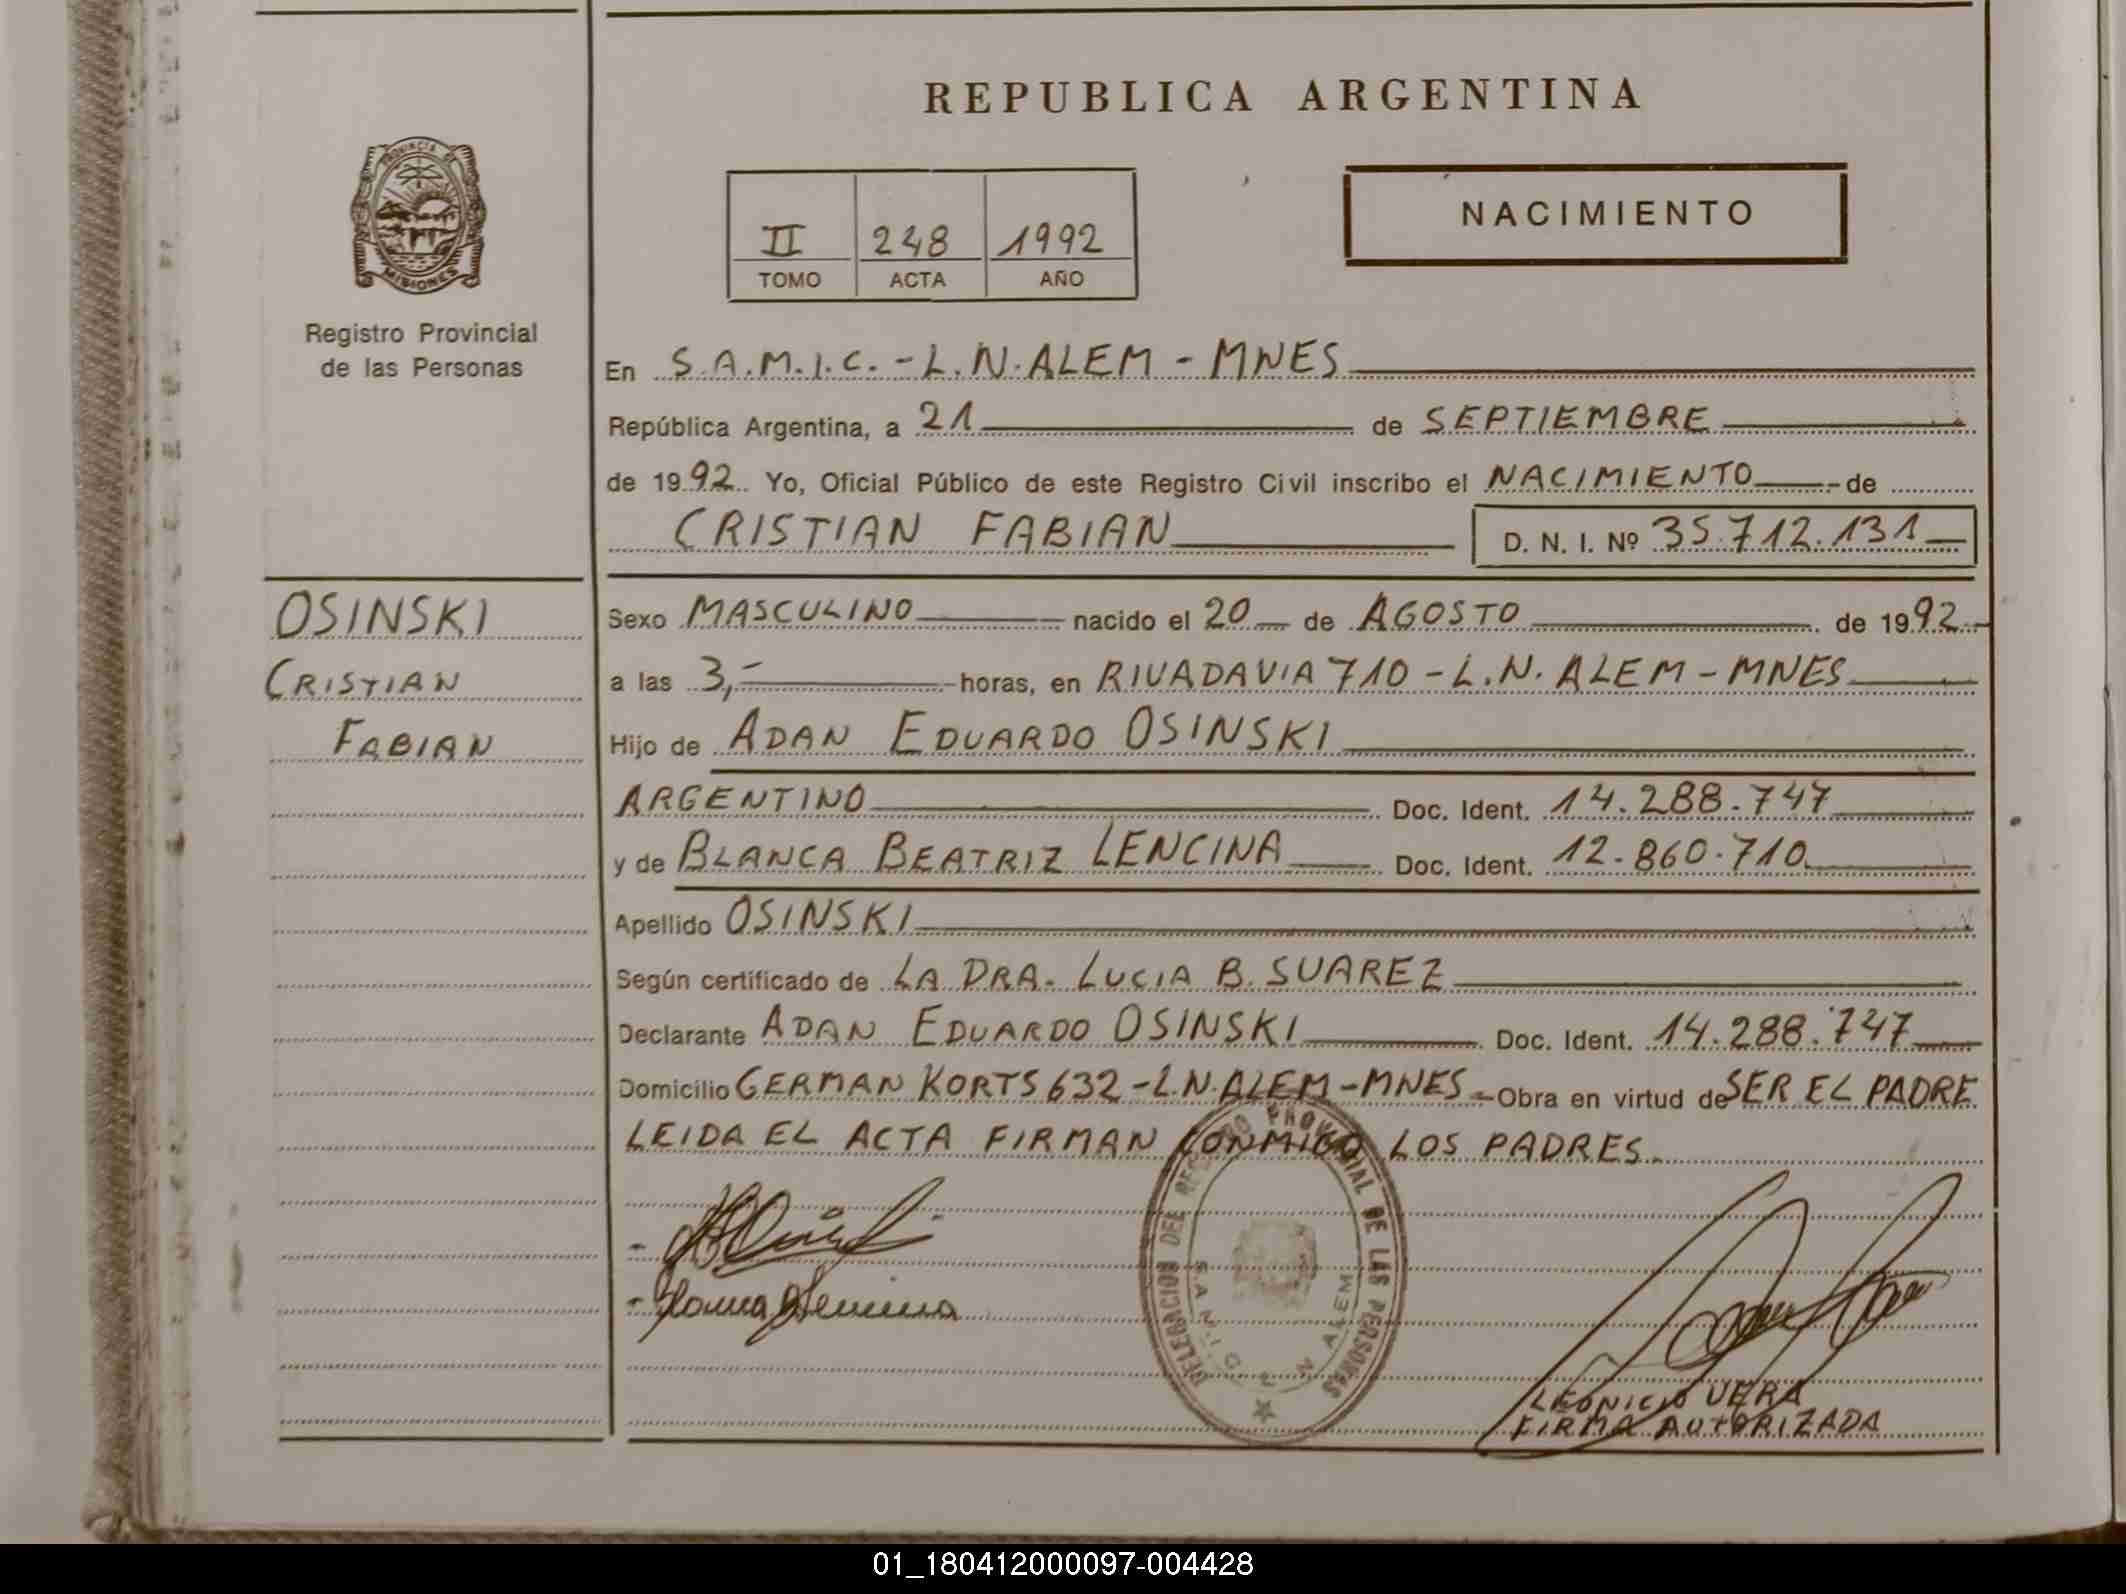 REPUBLICA ARGENTINA
PROVINCIA DE
MISIONES
Registro Provincial
de las Personas
II 248 1992
TOMO ACTA AÑO
NACIMIENTO
En S.A.M.I.C. - L.N. ALEM - MNES
República Argentina, a 21 de SEPTIEMBRE
de 1992 Yo, Oficial Público de este Registro Civil inscribo el NACIMIENTO de
CRISTIAN FABIAN D. N. I. Nº 35.712.131
OSINSKI
CRISTIAN
FABIAN
Sexo MASCULINO nacido el 20 de AGOSTO de 1992
a las 3,- horas, en RIVADAVIA 710 - L.N. ALEM - MNES
Hijo de ADAN EDUARDO OSINSKI
ARGENTINO Doc. Ident. 14.288.747
y de BLANCA BEATRIZ LENCINA Doc. Ident. 12.860.710
Apellido OSINSKI
Según certificado de LA DRA. LUCIA B. SUAREZ
Declarante ADAN EDUARDO OSINSKI Doc. Ident. 14.288.747
Domicilio GERMAN KORTS 632 - L.N. ALEM - MNES - Obra en virtud de SER EL PADRE
LEIDA EL ACTA FIRMAN CONMIGO LOS PADRES.
DELEGACION DEL REGISTRO PROVINCIAL DE LAS PERSONAS
L N ALEM
LEONICIO VERA
FIRMA AUTORIZADA
01_180412000097-004428